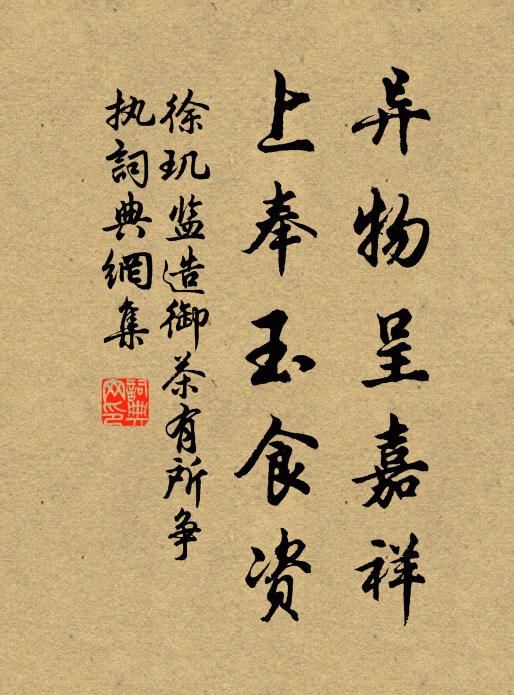 异物呈嘉祥
上奉玉食资
徐玑监造御茶有所争
执詞典網集
詞典